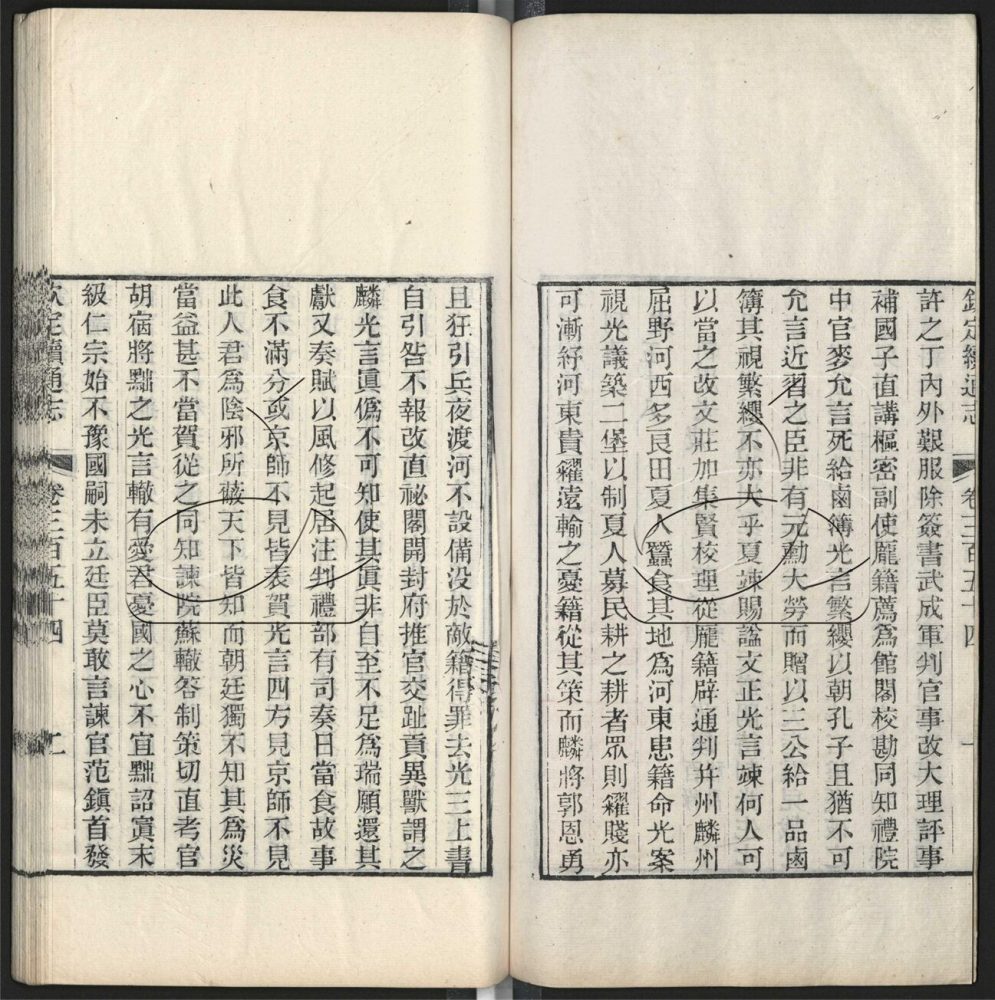 欽定續通志 卷三百五十四 一
許之丁內外艱服除簽書武成軍判官事改大理評事
補國子直講樞密副使龐籍薦爲館閣校勘同知禮院
中官麥允言死給鹵簿光言繁纓以朝孔子且猶不可
允言近習之臣非有元勳大勞而贈以三公給一品鹵
簿其視繁纓不亦大乎夏竦賜諡文正光言竦何人可
以當之改文莊加集賢校理從龐籍辟通判幷州麟州
屈野河西多良田夏人蠶食其地爲河東患籍命光案
視光議築二堡以制夏人募民耕之耕者眾則糴賤亦
可漸紓河東貴糴遠輸之憂籍從其策而麟將郭恩勇
且狂引兵夜渡河不設備没於敵籍得罪去光三上書
自引咎不報改直祕閣開封府推官交趾貢異獸謂之
麟光言眞僞不可知使其眞非自至不足爲瑞願還其
獻又奏賦以風修起居注判禮部有司奏日當食故事
食不滿分或京師不見皆表賀光言四方見京師不見
此人君爲陰邪所蔽天下皆知而朝廷獨不知其爲災
當益甚不當賀從之同知諫院蘇轍答制策切直考官
胡宿將黜之光言轍有愛君憂國之心不宜黜詔寘末
級仁宗始不豫國嗣未立廷臣莫敢言諫官范鎮首發
欽定續通志 卷三百五十四 二